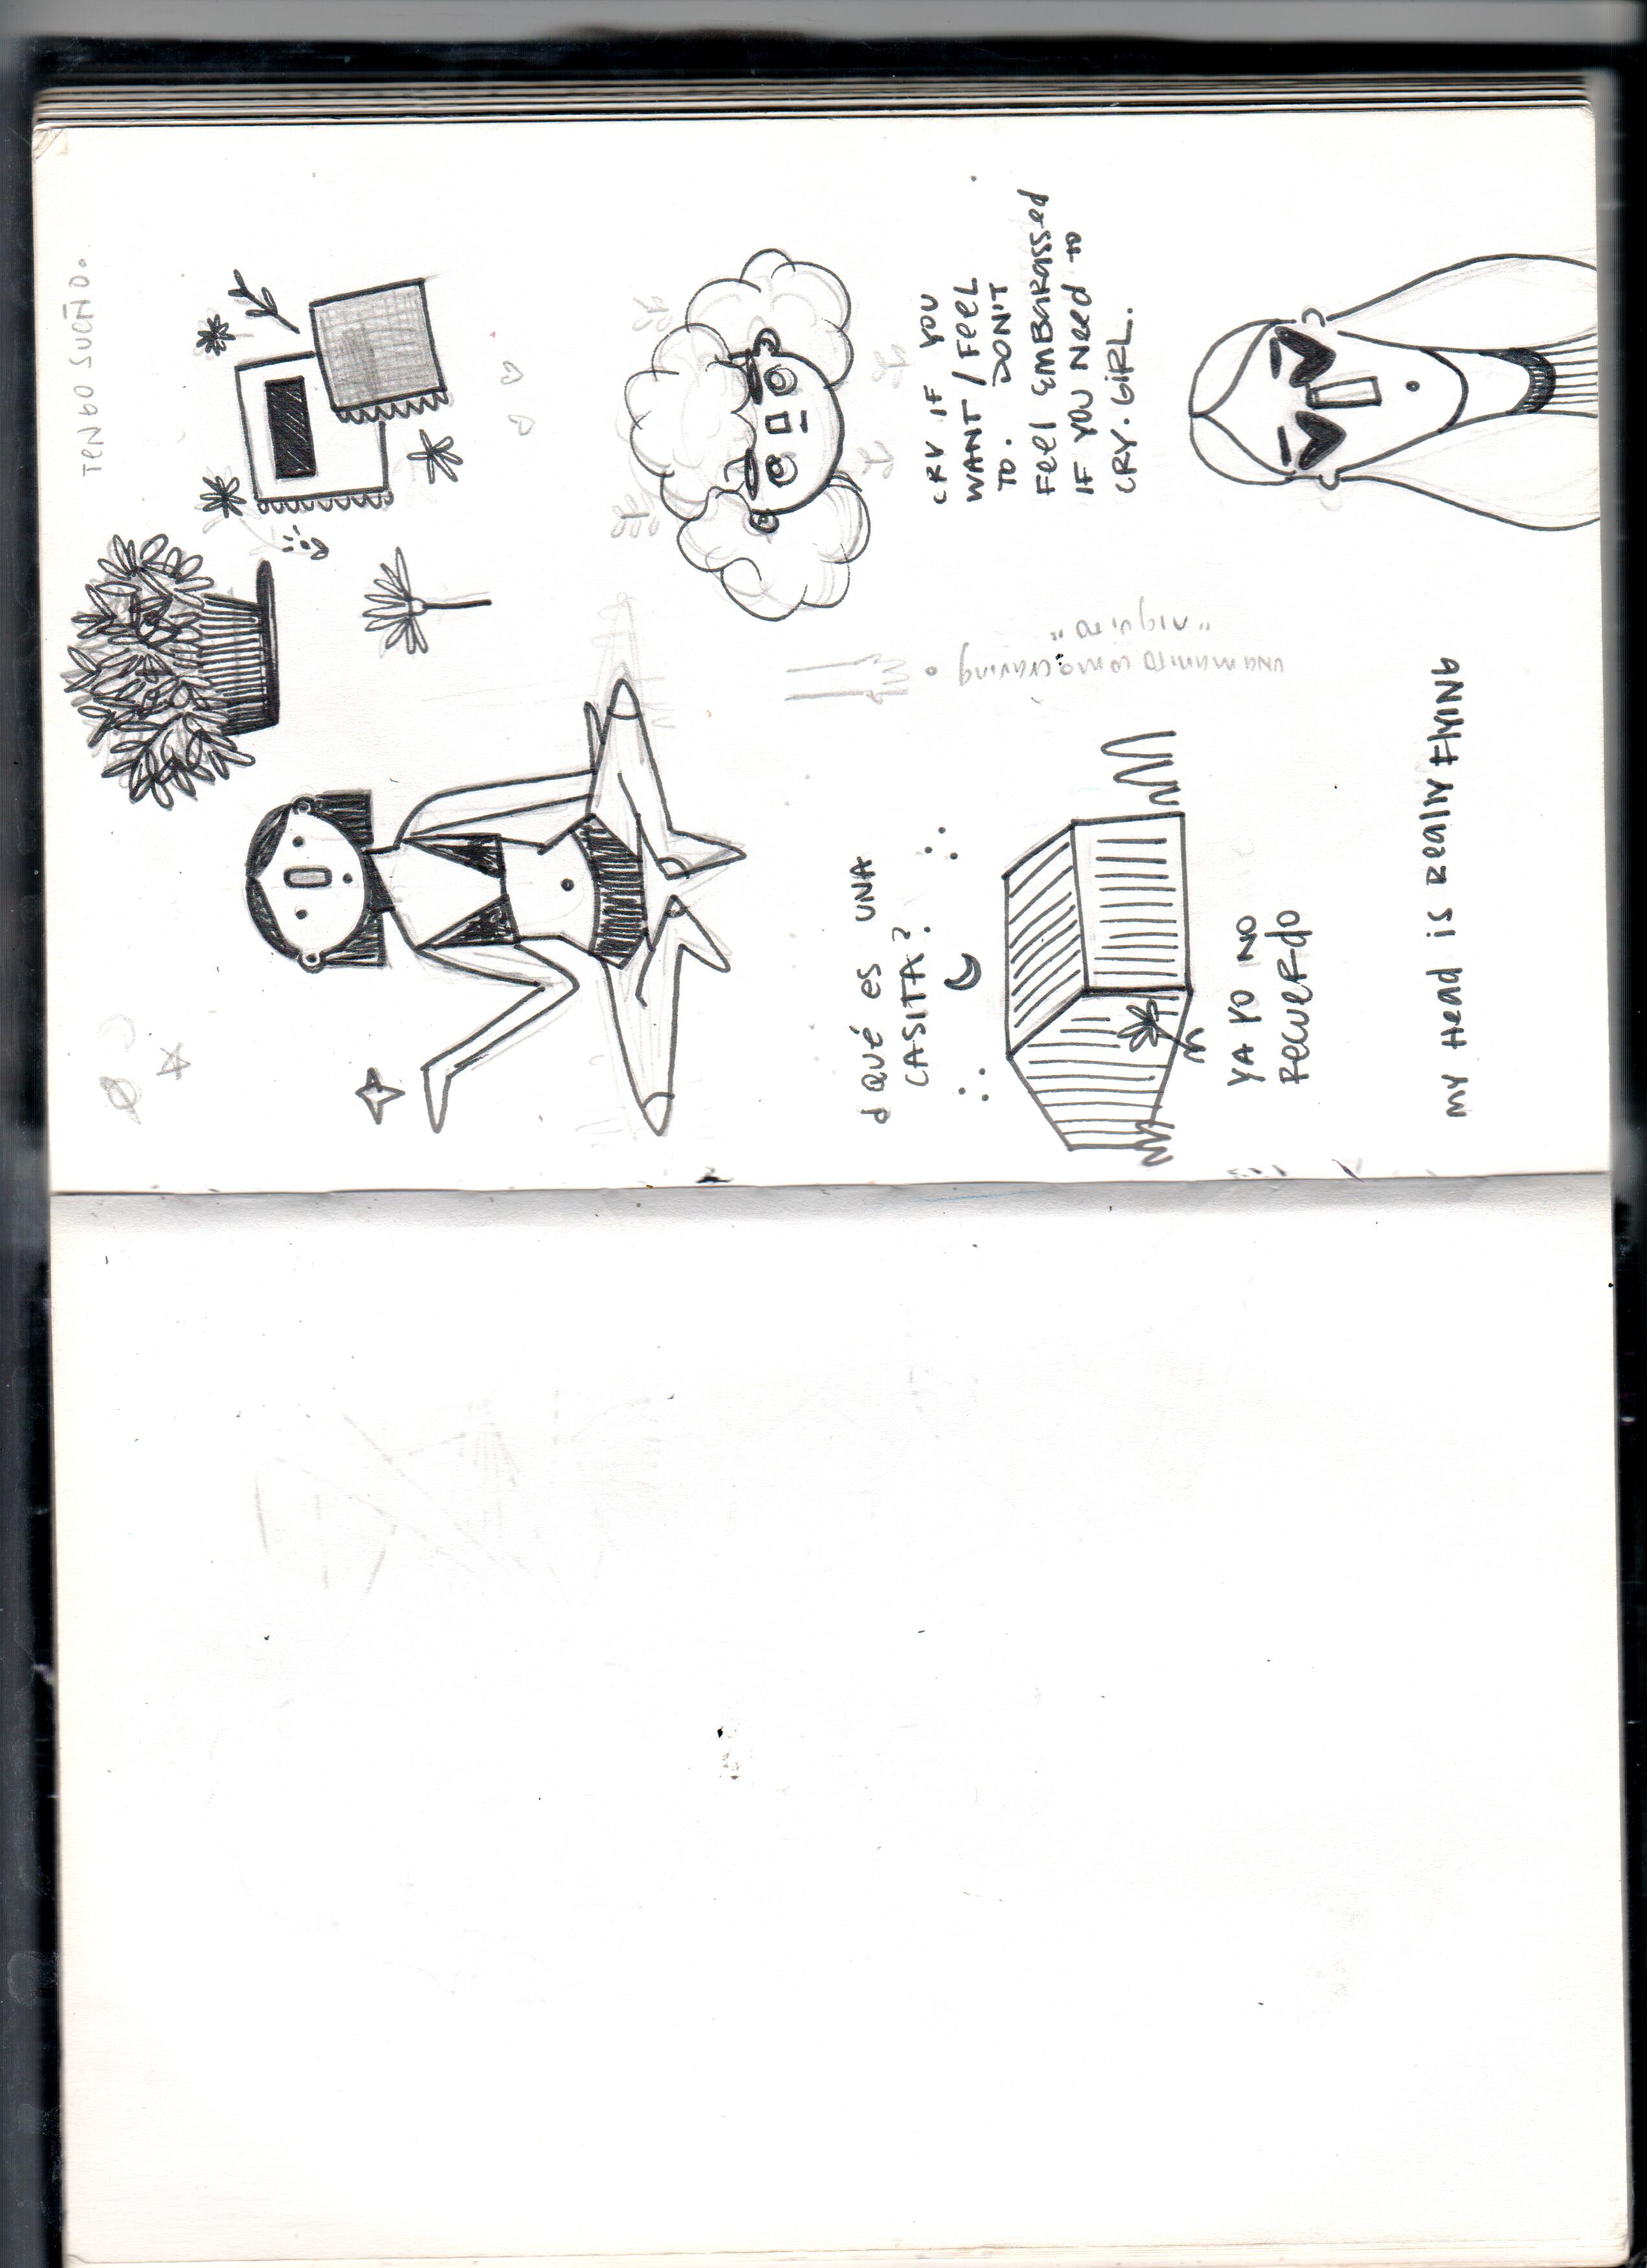 TENGO SUEÑO.
¿QUÉ ES UNA
CASITA?
YA YO NO
RECUERDO
CRY IF YOU
WANT / FEEL
TO. DON'T
FEEL EMBARASSED
IF YOU NEED TO
CRY. GIRL.
MY HEAD IS REALLY FLYING